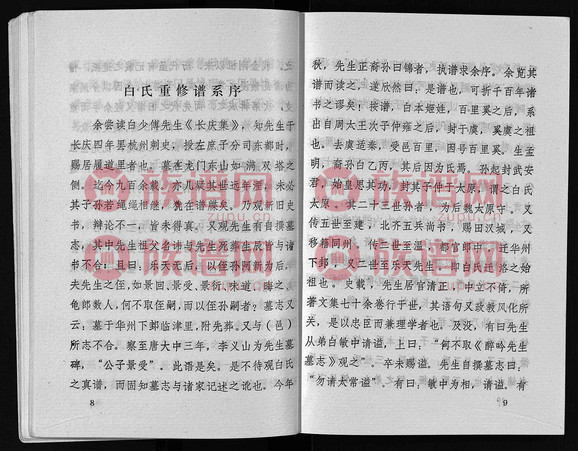 白氏重修谱系序
余尝读白少傅先生《长庆集》，知先生于
长庆四年罢杭州刺史，授左庶子分司东都时，
赐居履道里者也。薨葬龙门东山如满双塔之
侧。迄今九百余载，亦几成其世远年湮，未必
其子孙若绳绳相继，犹在谱牒矣。乃观新旧史
书，辩论不一，皆未得真。又观先生有自撰墓
志，其中先生祖父名讳与先生死葬生辰皆与诸
书不合；墓曰：乐天无后，以侄孙阿新为后，
夫先生之侄，如景回、景受、景衍、味道、晦之、
龟郎数人，何不取侄嗣，而以侄孙嗣者；墓志又
云：墓于华州下邽临津里，附先葬，又与（邑）
所志不合。察至唐大中三年，李义山为先生墓
碑，“公子景受”，此语是矣。是不待观白氏
之真谱，而固知墓志与诸家记述之讹也。今年
8
秋，先生正裔孙曰锦者，执谱求余序。余览其
谱而读之，遂欣然曰：是谱也，可折千百年诸
书之谬矣；按谱，白本姬姓，百里奚之后，系
出自周大王次子仲雍之后，封于虞，奚虞之祖
也。去虞适秦，受邑百里，因号百里奚。生孟
明，裔孙白乙丙，其后因为氏焉。孙起封武安
君，始皇思其功，封其子仲于太原，谓之白氏
太原。其二十三世孙者，为后魏太原守。又
传五世至建，北齐五兵尚书，赐田汉城，又
移籍同州。传二世至温，都官郎中，迁华州
下邽，又二世至乐天先生，即白氏迁洛之始
祖也。史载，先生居官清正，中立不倚，所
著文集七十余卷行于世，其语句又兢教风化所
关，是以忠臣而兼理学者也。及没，有曰先生
从弟白敏中请谥，上曰：“何不取《醉吟先生
墓志》观之”。卒未赐谥。先生自撰墓志曰：
“勿请太常谥”。有曰：敏中为相，请谥。有
9
族谱网
zupu.cn
族谱网
zupu.cn